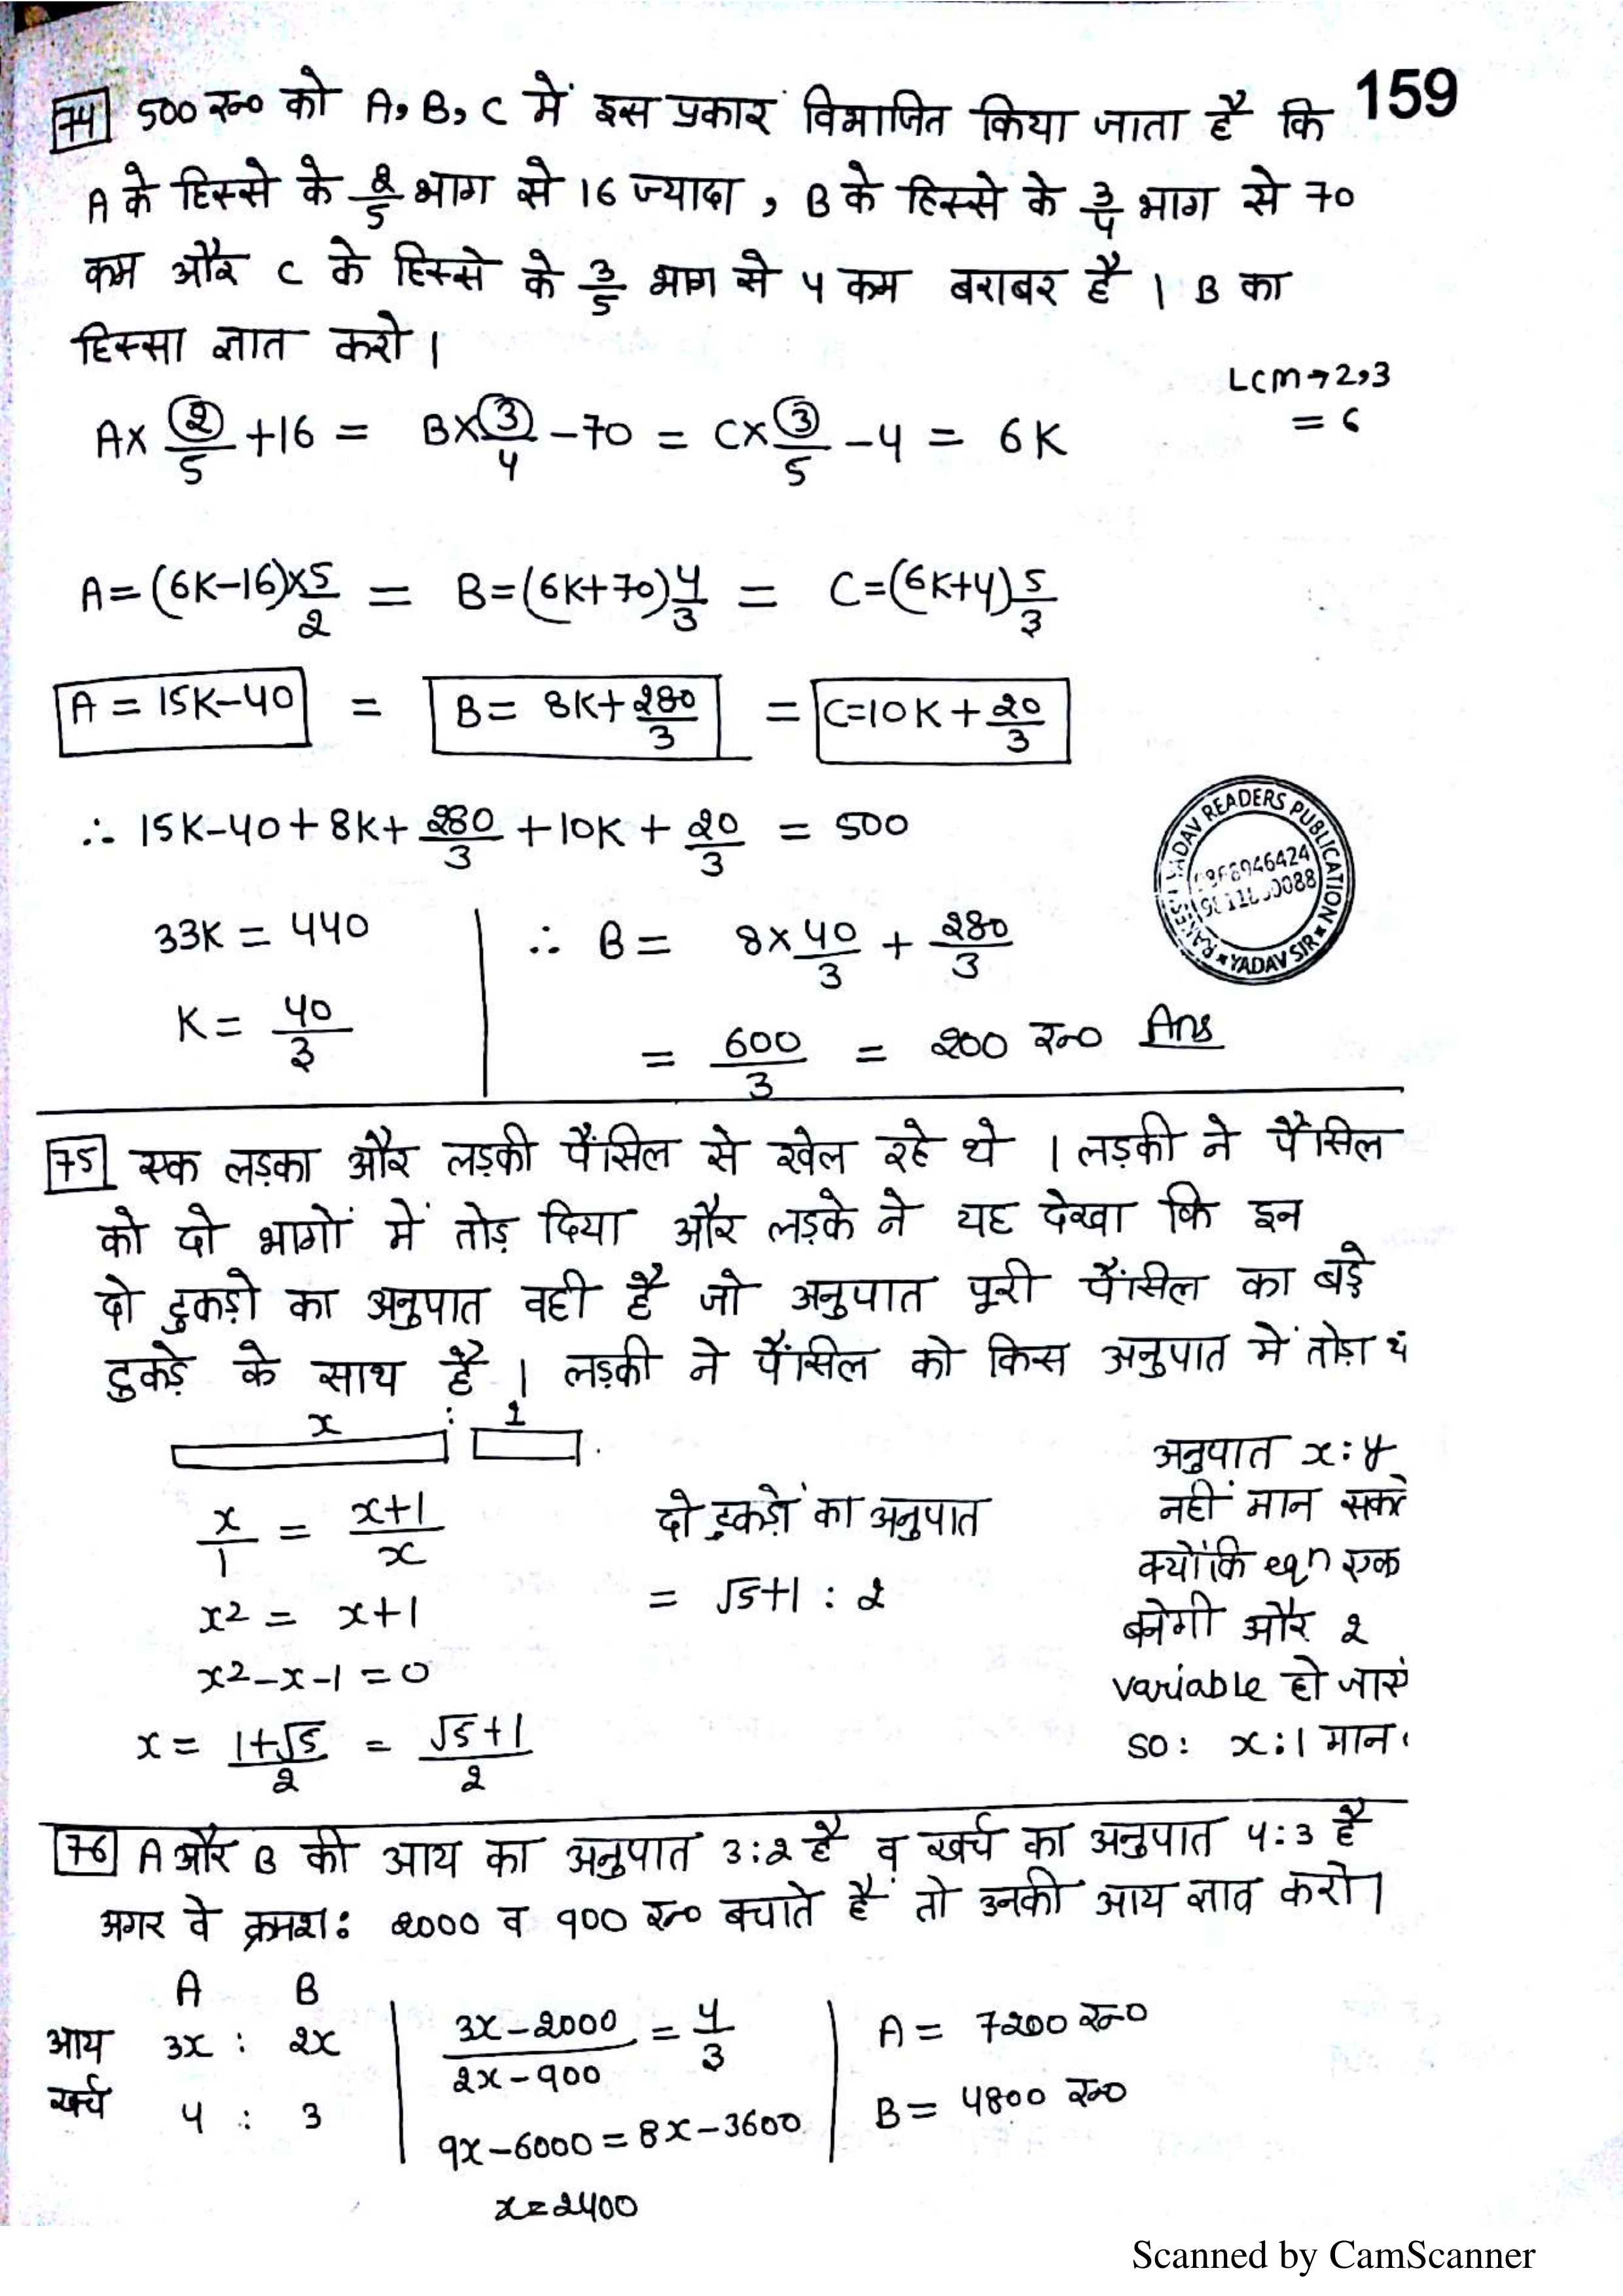 159
74 500 रु० को A, B, C में इस प्रकार विभाजित किया जाता है कि
A के हिस्से के 2/5 भाग से 16 ज्यादा, B के हिस्से के 3/4 भाग से 70
कम और C के हिस्से के 3/5 भाग से 4 कम बराबर है। B का
हिस्सा ज्ञात करो।
LCM→2,3
= 6
A× 2/5 +16 = B× 3/4 -70 = C× 3/5 -4 = 6K
A=(6K-16)×5/2 = B=(6K+70)4/3 = C=(6K+4)5/3
A = 15K-40 = B= 8K+280/3 = C=10K+20/3
∴ 15K-40+8K+280/3+10K+20/3 = 500
33K = 440
K = 40/3
∴ B = 8×40/3 + 280/3
= 600/3 = 200 रु० Ans
YADAV READERS PUBLICATION
YADAV SIR
75 एक लड़का और लड़की पैंसिल से खेल रहे थे। लड़की ने पैंसिल
को दो भागों में तोड़ दिया और लड़के ने यह देखा कि इन
दो टुकड़ो का अनुपात वही है जो अनुपात पूरी पैंसिल का बड़े
टुकड़े के साथ है। लड़की ने पैंसिल को किस अनुपात में तोड़ा
x : 1
x/1 = x+1/x
x2 = x+1
x2-x-1=0
x = 1+√5/2 = √5+1/2
दो टुकड़ों का अनुपात
= √5+1 : 2
अनुपात x:y
नहीं मान सकते
क्योंकि eqn एक
बनेगी और 2
variable हो
so: x:1 मान
76 A और B की आय का अनुपात 3:2 है व खर्च का अनुपात 4:3 है
अगर वे क्रमशः 2000 व 900 रु० बचाते हैं तो उनकी आय ज्ञात करो।
A B
आय 3x : 2x
खर्च 4 : 3
3x-2000/2x-900 = 4/3
9x-6000=8x-3600
x=2400
A = 7200 रु०
B = 4800 रु०
Scanned by CamScanner